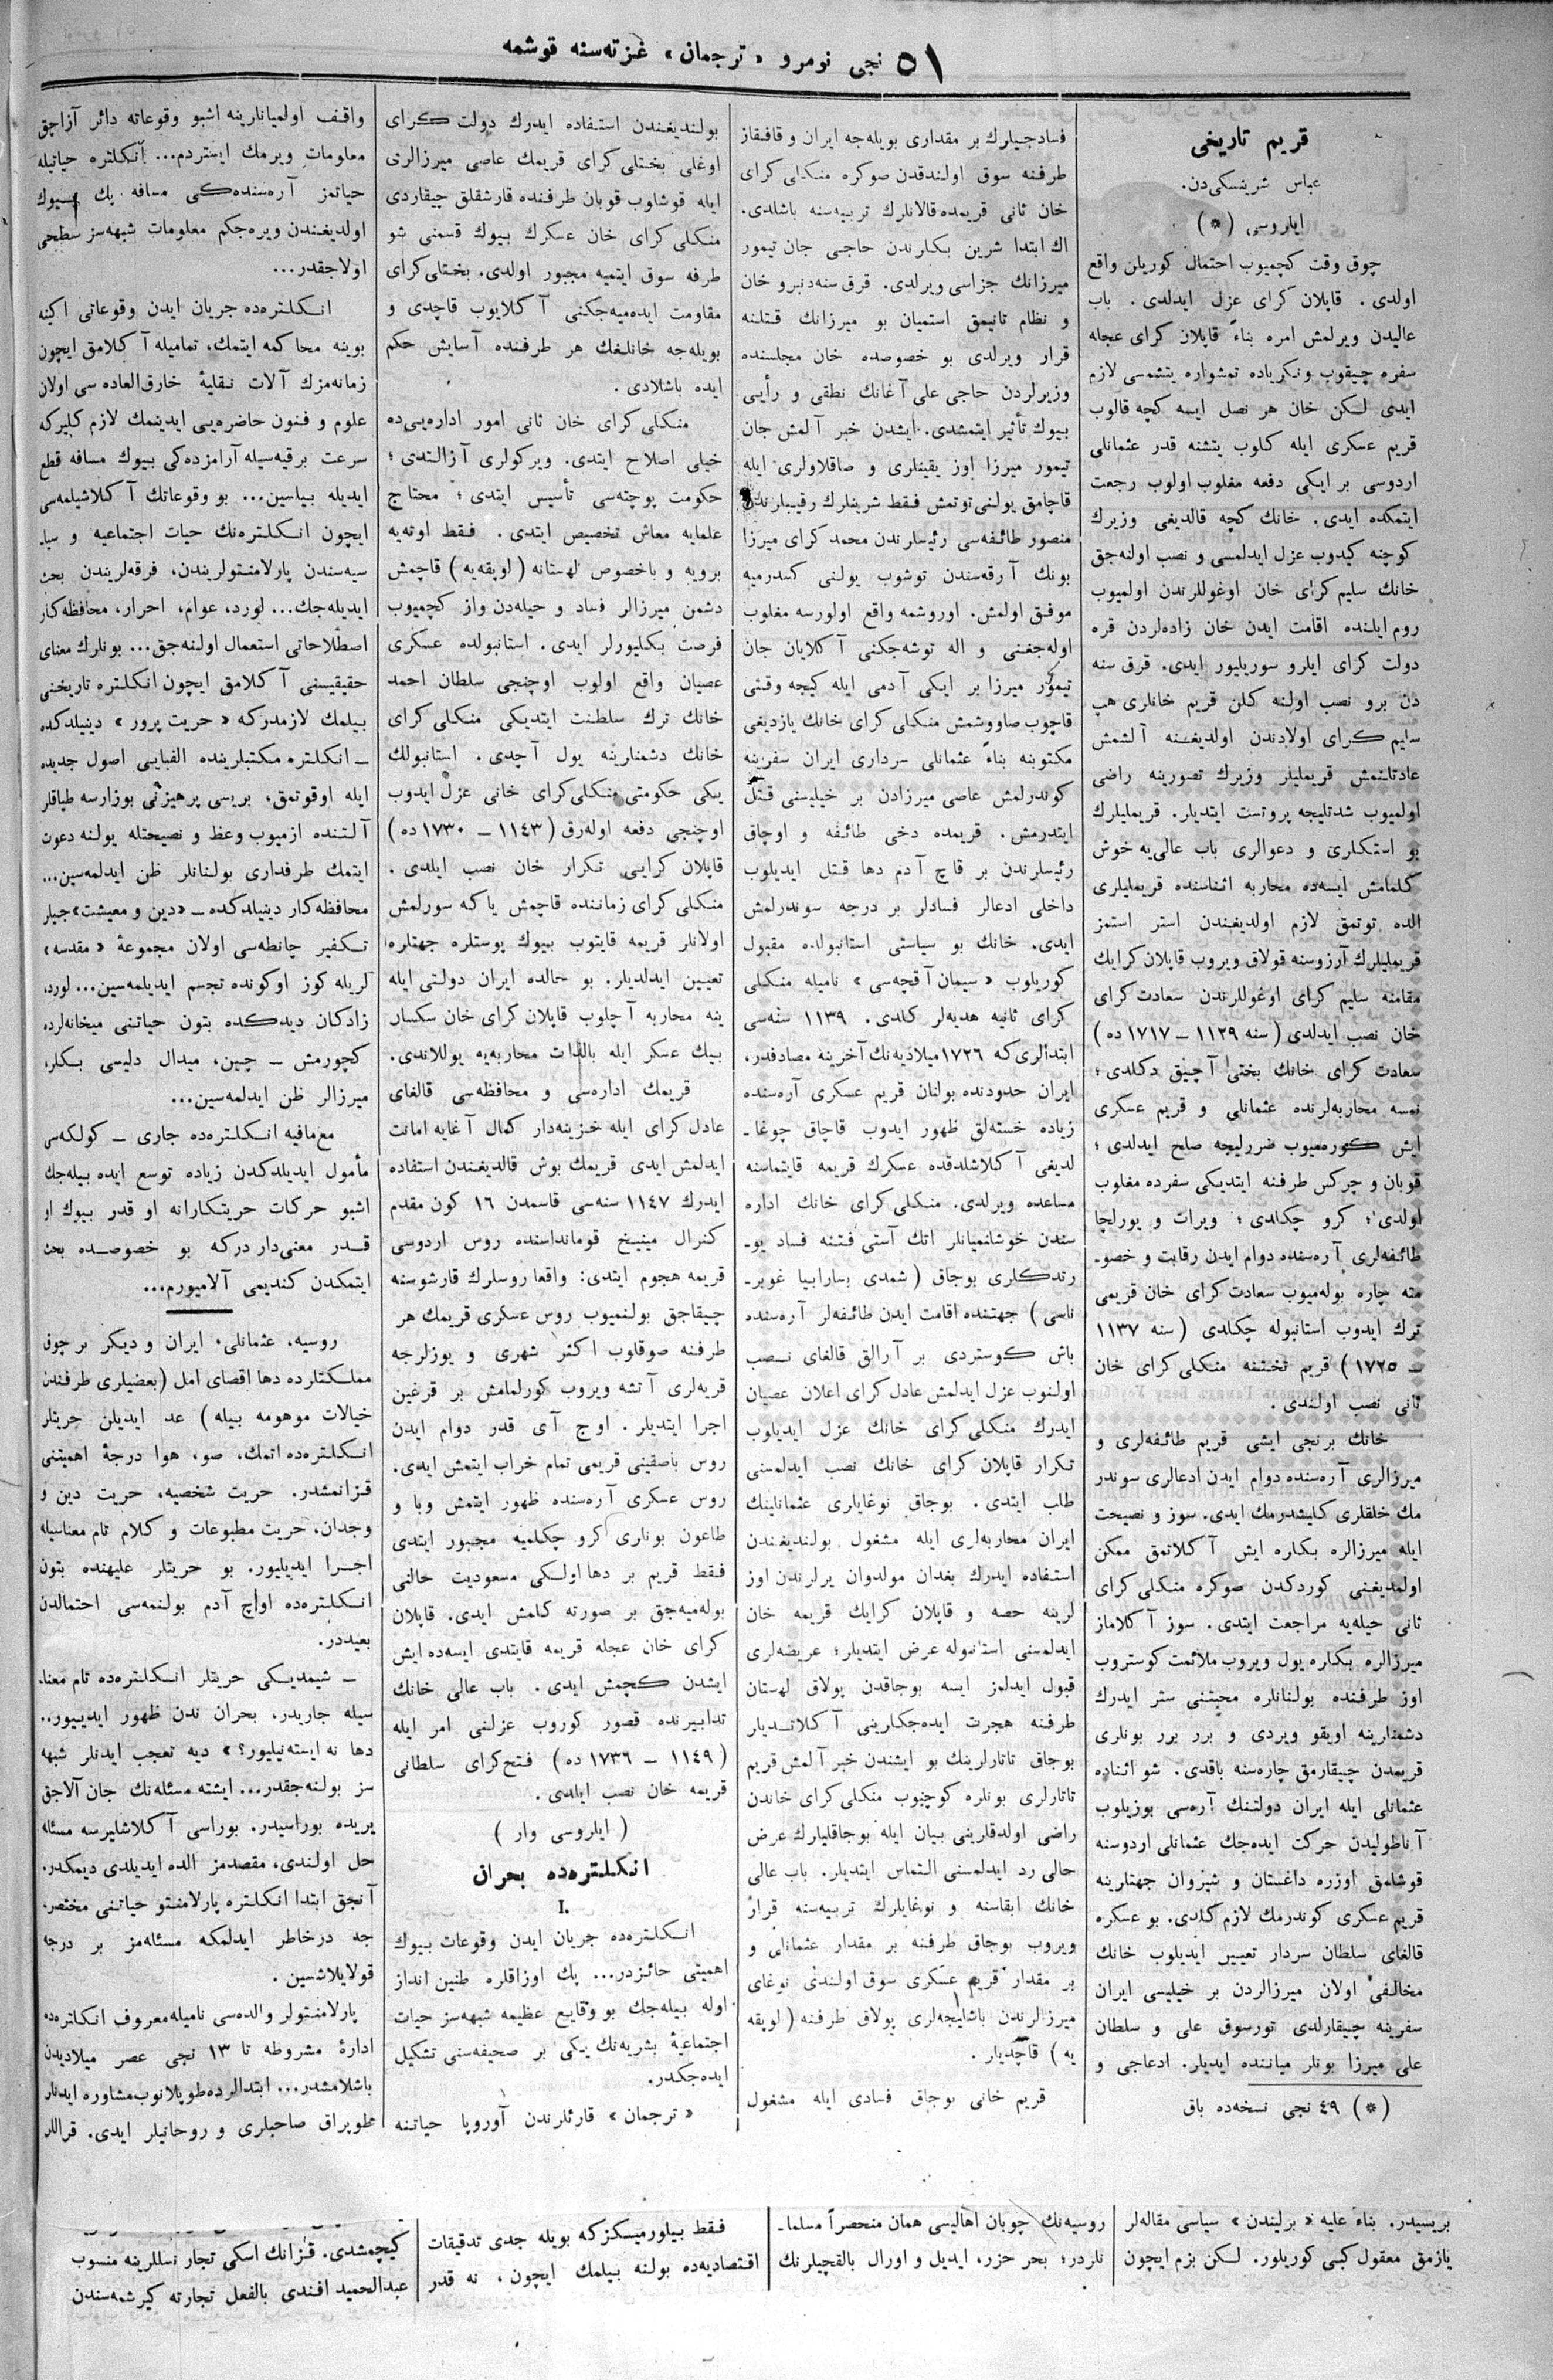 ٥١ نجی نومرو « ترجمان » غزته‌سنه قوشمه
قریم تاریخی
عباس شرینسکی‌دن.
ایلروسی (*)
چوق وقت کچمیوب احتمال کوریلن واقع
اولدی. قاپلان کرای عزل ایدلدی. باب
عالیدن ویرلمش امره بناءً قاپلان کرای عجله
سفره چیقوب ونکریاده تمشواره یتشمسی لازم
ایدی لکن خان هر نصل ایسه کچه قالوب
قریم عسکری ایله کلوب یتشنه قدر عثمانلی
اردوسی بر ایکی دفعه مغلوب اولوب رجعت
ایتمکده ایدی. خانك کچه قالدیغی وزیرك
کوچنه کیدوب عزل ایدلمسی و نصب اولنه‌جق
خانك سلیم کرای خان اوغوللرندن اولمیوب
روم ایلنده اقامت ایدن خان زاده‌لردن قره
دولت کرای ایلرو سوریلیور ایدی. قرق سنه
دن برو نصب اولنه کلن قریم خانلری هپ
سلیم کرای اولادندن اولدیغنه آلشمش
عادتلنمش قریملیلر وزیرك تصورینه راضی
اولمیوب شدتلیجه پروتست ایتدیلر. قریملیلرك
بو استکلری و دعوالری باب عالی‌یه خوش
کلمامش ایسه‌ده محاربه اثناسنده قریملیلری
الده توتمق لازم اولدیغندن استر استمز
قریملیلرك آرزوسنه قولاق ویروب قاپلان کرایك
مقامنه سلیم کرای اوغوللرندن سعادت کرای
خان نصب ایدلدی (سنه ١١٢٩ – ١٧١٧ ده)
سعادت کرای خانك بختی آچیق دکلدی؛
نمسه محاربه‌لرنده عثمانلی و قریم عسکری
ایش کوره‌میوب ضررلیجه صلح ایدلدی؛
قوبان و چرکس طرفنه ایتدیکی سفرده مغلوب
اولدی؛ کرو چکلدی؛ ویرات و یورلچا
طائفه‌لری آره‌سنده دوام ایدن رقابت و خصو-
مته چاره بوله‌میوب سعادت کرای خان قریمی
ترك ایدوب استانبوله چکلدی (سنه ١١٣٧
– ١٧٢٥) قریم تختنه منکلی کرای خان
ثانی نصب اولندی.
خانك برنجی ایشی قریم طائفه‌لری و
میرزالری آره‌سنده دوام ایدن ادعالری سوندر
مك خلقلری کلیشدرمك ایدی. سوز و نصیحت
ایله میرزالره بکلره ایش آکلاتمق ممکن
اولمدیغنی کوردکدن صوکره منکلی کرای
ثانی حیله‌یه مراجعت ایتدی. سوز آکلاماز
میرزالره بکلره یول ویروب ملائمت کوستروب
اوز طرفنده بولنانلره محبتنی ستر ایدرك
دشمنلرینه اویقو ویردی و برر برر بونلری
قریمدن چیقارمق چاره‌سنه باقدی. شو اثناده
عثمانلی ایله ایران دولتنك آره‌سی بوزیلوب
آناطولیدن حرکت ایده‌جك عثمانلی اردوسنه
قوشلمق اوزره داغستان و شیروان جهتلرینه
قریم عسکری کوندرمك لازم کلدی. بو عسکره
قالغای سلطان سردار تعیین ایدیلوب خانك
مخالفی اولان میرزالردن بر خیلیسی ایران
سفرینه چیقارلدی تورسوق علی و سلطان
علی میرزا بونلر میاننده ایدیلر. ادعاجی و
(*) ٤٩ نجی نسخه‌ده باق
فسادجیلرك بر مقداری بویله‌جه ایران و قافقاز
طرفنه سوق اولندقدن صوکره منکلی کرای
خان ثانی قریمده قالانلرك تربیه‌سنه باشلدی.
اك ابتدا شرین بکلرندن حاجی جان تیمور
میرزانك جزاسی ویرلدی. قرق سنه‌دنبرو خان
و نظام تانیمق استمیان بو میرزانك قتلنه
قرار ویرلدی بو خصوصده خان مجلسنده
وزیرلردن حاجی علی آغانك نطقی و رأیی
بیوك تأثیر ایتمشدی. ایشدن خبر آلمش جان
تیمور میرزا اوز یقینلری و صاقلاولری ایله
قاچامق یولنی توتمش فقط شرینلرك رقیبلرندن
منصور طائفه‌سی رئیسلرندن محمد کرای میرزا
بونك آرقه‌سندن توشوب یولنی کسدرمیه
موفق اولمش. اوروشمه واقع اولورسه مغلوب
اوله‌جغنی و اله توشه‌جکنی آکلایان جان
تیمور میرزا بر ایکی آدمی ایله کیجه وقتی
قاچوب صاووشمش منکلی کرای خانك یازدیغی
مکتوبنه بناءً عثمانلی سرداری ایران سفرینه
کوندرلمش عاصی میرزادن بر خیلیسنی قتل
ایتدرمش. قریمده دخی طائفه و اوچاق
رئیسلرندن بر قاچ آدم دها قتل ایدیلوب
داخلی ادعالر فسادلر بر درجه سوندرلمش
ایدی. خانك بو سیاستی استانبولده مقبول
کوریلوب « سیمان آقچه‌سی » نامیله منکلی
کرای ثانیه هدیه‌لر کلدی. ١١٣٩ سنه‌سی
ابتدالری که ١٧٢٦ میلادیه‌نك آخرینه مصادفدر،
ایران حدودنده بولنان قریم عسکری آره‌سنده
زیاده خسته‌لق ظهور ایدوب قاچاق چوغا-
لدیغی آکلاشلدقده عسکرك قریمه قایتماسنه
مساعده ویرلدی. منکلی کرای خانك اداره
سندن خوشلنمیانلر اتك آستی فتنه فساد یو-
رتدکلری بوجاق (شمدی بسارابیا غوبر-
ناسی) جهتنده اقامت ایدن طائفه‌لر آره‌سنده
باش کوستردی بر آرالق قالغای نصب
اولنوب عزل ایدلمش عادل کرای اعلان عصیان
ایدرك منکلی کرای خانك عزل ایدیلوب
تکرار قاپلان کرای خانك نصب ایدلمسنی
طلب ایتدی. بوجاق نوغایلری عثمانلینك
ایران محاربه‌لری ایله مشغول بولندیغندن
استفاده ایدرك بغدان مولدوان یرلرندن اوز
لرینه حصه و قاپلان کرایك قریمه خان
ایدلمسنی استانبوله عرض ایتدیلر؛ عریضه‌لری
قبول ایدلمز ایسه بوجاقدن پولاق لهستان
طرفنه هجرت ایده‌جکلرینی آکلاتدیلر
بوجاق تاتارلرینك بو ایشندن خبر آلمش قریم
تاتارلری بونلره کوچنوب منکلی کرای خاندن
راضی اولدقلرینی بیان ایله بوجاقلیلرك عرض
حالی رد ایدلمسنی التماس ایتدیلر. باب عالی
خانك ابقاسنه و نوغایلرك تربیه‌سنه قرار
ویروب بوجاق طرفنه بر مقدار عثمانلی و
بر مقدار قریم عسکری سوق اولندی نوغای
میرزالرندن باشلیجه‌لری پولاق طرفنه (لوپقه
یه) قاچدیلر.
قریم خانی بوجاق فسادی ایله مشغول
بولندیغندن استفاده ایدرك دولت کرای
اوغلی بختلی کرای قریمك عاصی میرزالری
ایله قوشلوب قوبان طرفنده قارشقلق چیقاردی
منکلی کرای خان عسکرك بیوك قسمنی شو
طرفه سوق ایتمیه مجبور اولدی. بختلی کرای
مقاومت ایده‌میه‌جکنی آکلایوب قاچدی و
بویله‌جه خانلغك هر طرفنده آسایش حکم
ایده باشلادی.
منکلی کرای خان ثانی امور اداره‌یی‌ده
خیلی اصلاح ایتدی. ویرکولری آزالتدی؛
حکومت پوچته‌سی تأسیس ایتدی؛ محتاج
علمایه معاش تخصیص ایتدی. فقط اوته‌یه
برویه و باخصوص لهستانه (لوپقه‌یه) قاچمش
دشمن میرزالر فساد و حیله‌دن واز کچمیوب
فرصت بکلیورلر ایدی. استانبولده عسکری
عصیان واقع اولوب اوچنجی سلطان احمد
خانك ترك سلطنت ایتدیکی منکلی کرای
خانك دشمنلرینه یول آچدی. استانبولك
یکی حکومتی منکلی کرای خانی عزل ایدوب
اوچنجی دفعه اوله‌رق (١١٤٣ – ١٧٣٠ ده)
قاپلان کرایی تکرار خان نصب ایلدی.
منکلی کرای زماننده قاچمش یاکه سورلمش
اولانلر قریمه قایتوب بیوك پوستلره جهتلره
تعیین ایدلدیلر. بو حالده ایران دولتی ایله
ینه محاربه آچلوب قاپلان کرای خان سکسان
بیك عسکر ایله بالذات محاربه‌یه یوللاندی.
قریمك اداره‌سی و محافظه‌سی قالغای
عادل کرای ایله خزینه‌دار کمال آغایه امانت
ایدلمش ایدی قریمك بوش قالدیغندن استفاده
ایدرك ١١٤٧ سنه‌سی قاسمدن ١٦ کون مقدم
کنرال مینیخ قومانداسنده روس اردوسی
قریمه هجوم ایتدی: واقعا روسلرك قارشوسنه
چیقاجق بولنمیوب روس عسکری قریمك هر
طرفنه صوقلوب اکثر شهری و یوزلرجه
قریه‌لری آتشه ویروب کورلمامش بر قرغین
اجرا ایتدیلر. اوچ آی قدر دوام ایدن
روس باصقینی قریمی تمام خراب ایتمش ایدی.
روس عسکری آره‌سنده ظهور ایتمش وبا و
طاعون بونلری کرو چکلمیه مجبور ایتدی
فقط قریم بر دها اولکی مسعودیت حالنی
بوله‌میه‌جق بر صورته کلمش ایدی. قاپلان
کرای خان عجله قریمه قایتدی ایسه‌ده ایش
ایشدن کچمش ایدی. باب عالی خانك
تدابیرنده قصور کوروب عزلنی امر ایله
(١١٤٩ – ١٧٣٦ ده) فتح کرای سلطانی
قریمه خان نصب ایلدی.
(ایلروسی وار)
انکلتره‌ده بحران
I.
انکلتره‌ده جریان ایدن وقوعات بیوك
اهمیتی حائزدر... پك اوزاقلره طنین انداز
اوله بیله‌جك بو وقایع عظیمه شبهه‌سز حیات
اجتماعیهٔ بشریه‌نك یکی بر صحیفه‌سنی تشکیل
ایده‌جکدر.
« ترجمان » قارئلرندن آوروپا حیاتنه
واقف اولمیانلرینه اشبو وقوعاته دائر آزاچق
معلومات ویرمك ایستردم... انکلتره حیاتیله
حیاتمز آره‌سنده‌کی مسافه پك بیوك
اولدیغندن ویره‌جکم معلومات شبهه‌سز سطحی
اولاجقدر...
انکلتره‌ده جریان ایدن وقوعاتی اکینه
بوینه محاکمه ایتمك، تمامیله آکلامق ایچون
زمانه‌مزك آلات نقلیهٔ خارق‌العاده سی اولان
علوم و فنون حاضره‌یی ایدینمك لازم کلیرکه
سرعت برقیه‌سیله آرامزده‌کی بیوك مسافه قطع
ایدیله بیلسین... بو وقوعاتك آکلاشیلمه‌سی
ایچون انکلتره‌نك حیات اجتماعیه و سیا-
سیه‌سندن پارلامنتولریندن، فرقه‌لریندن بحث
ایدیله‌جك... لورد، عوام، احرار، محافظه‌کار
اصطلاحاتی استعمال اولنه‌جق... بونلرك معنای
حقیقیسنی آکلامق ایچون انکلتره تاریخنی
بیلمك لازمدرکه « حریت پرور » دینیلدکده
– انکلتره مکتبلرینده الفبایی اصول جدیده
ایله اوقوتمق، بریسی پرهیزنی بوزارسه طیاقلر
آلتنده ازمیوب وعظ و نصیحتله یولنه دعوت
ایتمك طرفداری بولنانلر ظن ایدلمه‌سین...
محافظه‌کار دینیلدکده – «دین و معیشت»جیلر
تکفیر چانطه‌سی اولان مجموعهٔ « مقدسه »
لریله کوز اوکونده تجسم ایدیلمه‌سین... لورد،
زادکان دیدکده بتون حیاتنی میخانه‌لرده
کچورمش – چین، میدال دلیسی بکلر،
میرزالر ظن ایدلمه‌سین...
مع‌مافیه انکلتره‌ده جاری – کولکه‌سی
مأمول ایدیلدکدن زیاده توسع ایده بیله‌جك
اشبو حرکات حریتکارانه او قدر بیوك او
قدر معنی‌دار درکه بو خصوصده بحث
ایتمکدن کندیمی آلامیورم...
روسیه، عثمانلی، ایران و دیکر بر چوق
مملکتلرده دها اقصای امل (بعضیلری طرفندن
خیالات موهومه بیله) عد ایدیلن حریتلر
انکلتره‌ده اتمك، صو، هوا درجهٔ اهمیتنی
قزانمشدر. حریت شخصیه، حریت دین و
وجدان، حریت مطبوعات و کلام تام معناسیله
اجرا ایدیلیور. بو حریتلر علیهنده بتون
انکلتره‌ده اواچ آدم بولنمه‌سی احتمالدن
بعیددر.
– شیمدیکی حریتلر انکلتره‌ده تام معنا-
سیله جاریدر، بحران ندن ظهور ایدییور..
دها نه ایسته‌نیلیور؟» دیه تعجب ایدنلر شبهه
سز بولنه‌جقدر... ایشته مسئله‌نك جان آلاجق
یریده بوراسیدر. بوراسی آکلاشلیرسه مسئله
حل اولندی، مقصدمز الده ایدیلدی دیمکدر.
آنجق ابتدا انکلتره پارلامنتو حیاتنی مختصر
جه درخاطر ایدلمکه مسئله‌مز بر درجه
قولایلاشسین.
پارلامنتولر والده‌سی نامیله معروف انکلتره‌ده
ادارهٔ مشروطه تا ١٣ نجی عصر میلادیدن
باشلامشدر... ابتدالرده طوپلانوب مشاوره ایدنلر
طوپراق صاحبلری و روحانیلر ایدی. قراللر
بریسیدر. بناءً علیه « برلیندن » سیاسی مقاله‌لر
یازمق معقول کبی کوریلور. لکن بزم ایچون
روسیه‌نك چوبان اهالیسی همان منحصراً مسلما-
نلردر؛ بحر حزر، ایدیل و اورال بالقچیلرنك
فقط بیلورمیسکزکه بویله جدی تدقیقات
اقتصادیه‌ده بولنه بیلمك ایچون، نه قدر
کیچمشدی. قزانك اسکی تجار نسللرینه منسوب
عبدالحمید افندی بالفعل تجارته کیرشمه‌سندن